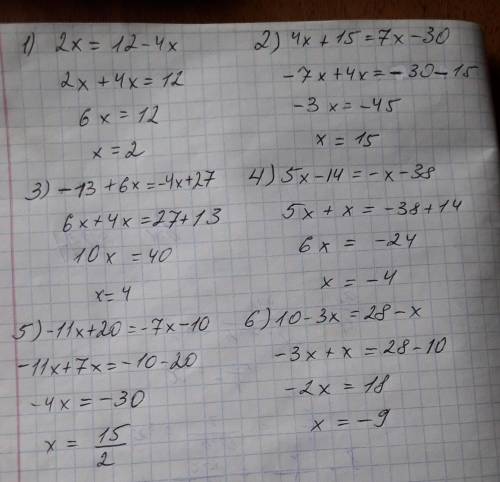 1) 2x = 12 - 4x
2x + 4x = 12
6x = 12
x = 2
2) 4x + 15 = 7x - 30
-7x + 4x = -30 - 15
-3x = -45
x = 15
3) -13 + 6x = -4x + 27
6x + 4x = 27 + 13
10x = 40
x = 4
4) 5x - 14 = -x - 38
5x + x = -38 + 14
6x = -24
x = -4
5) -11x + 20 = -7x - 10
-11x + 7x = -10 - 20
-4x = -30
x = 15/2
6) 10 - 3x = 28 - x
-3x + x = 28 - 10
-2x = 18
x = -9